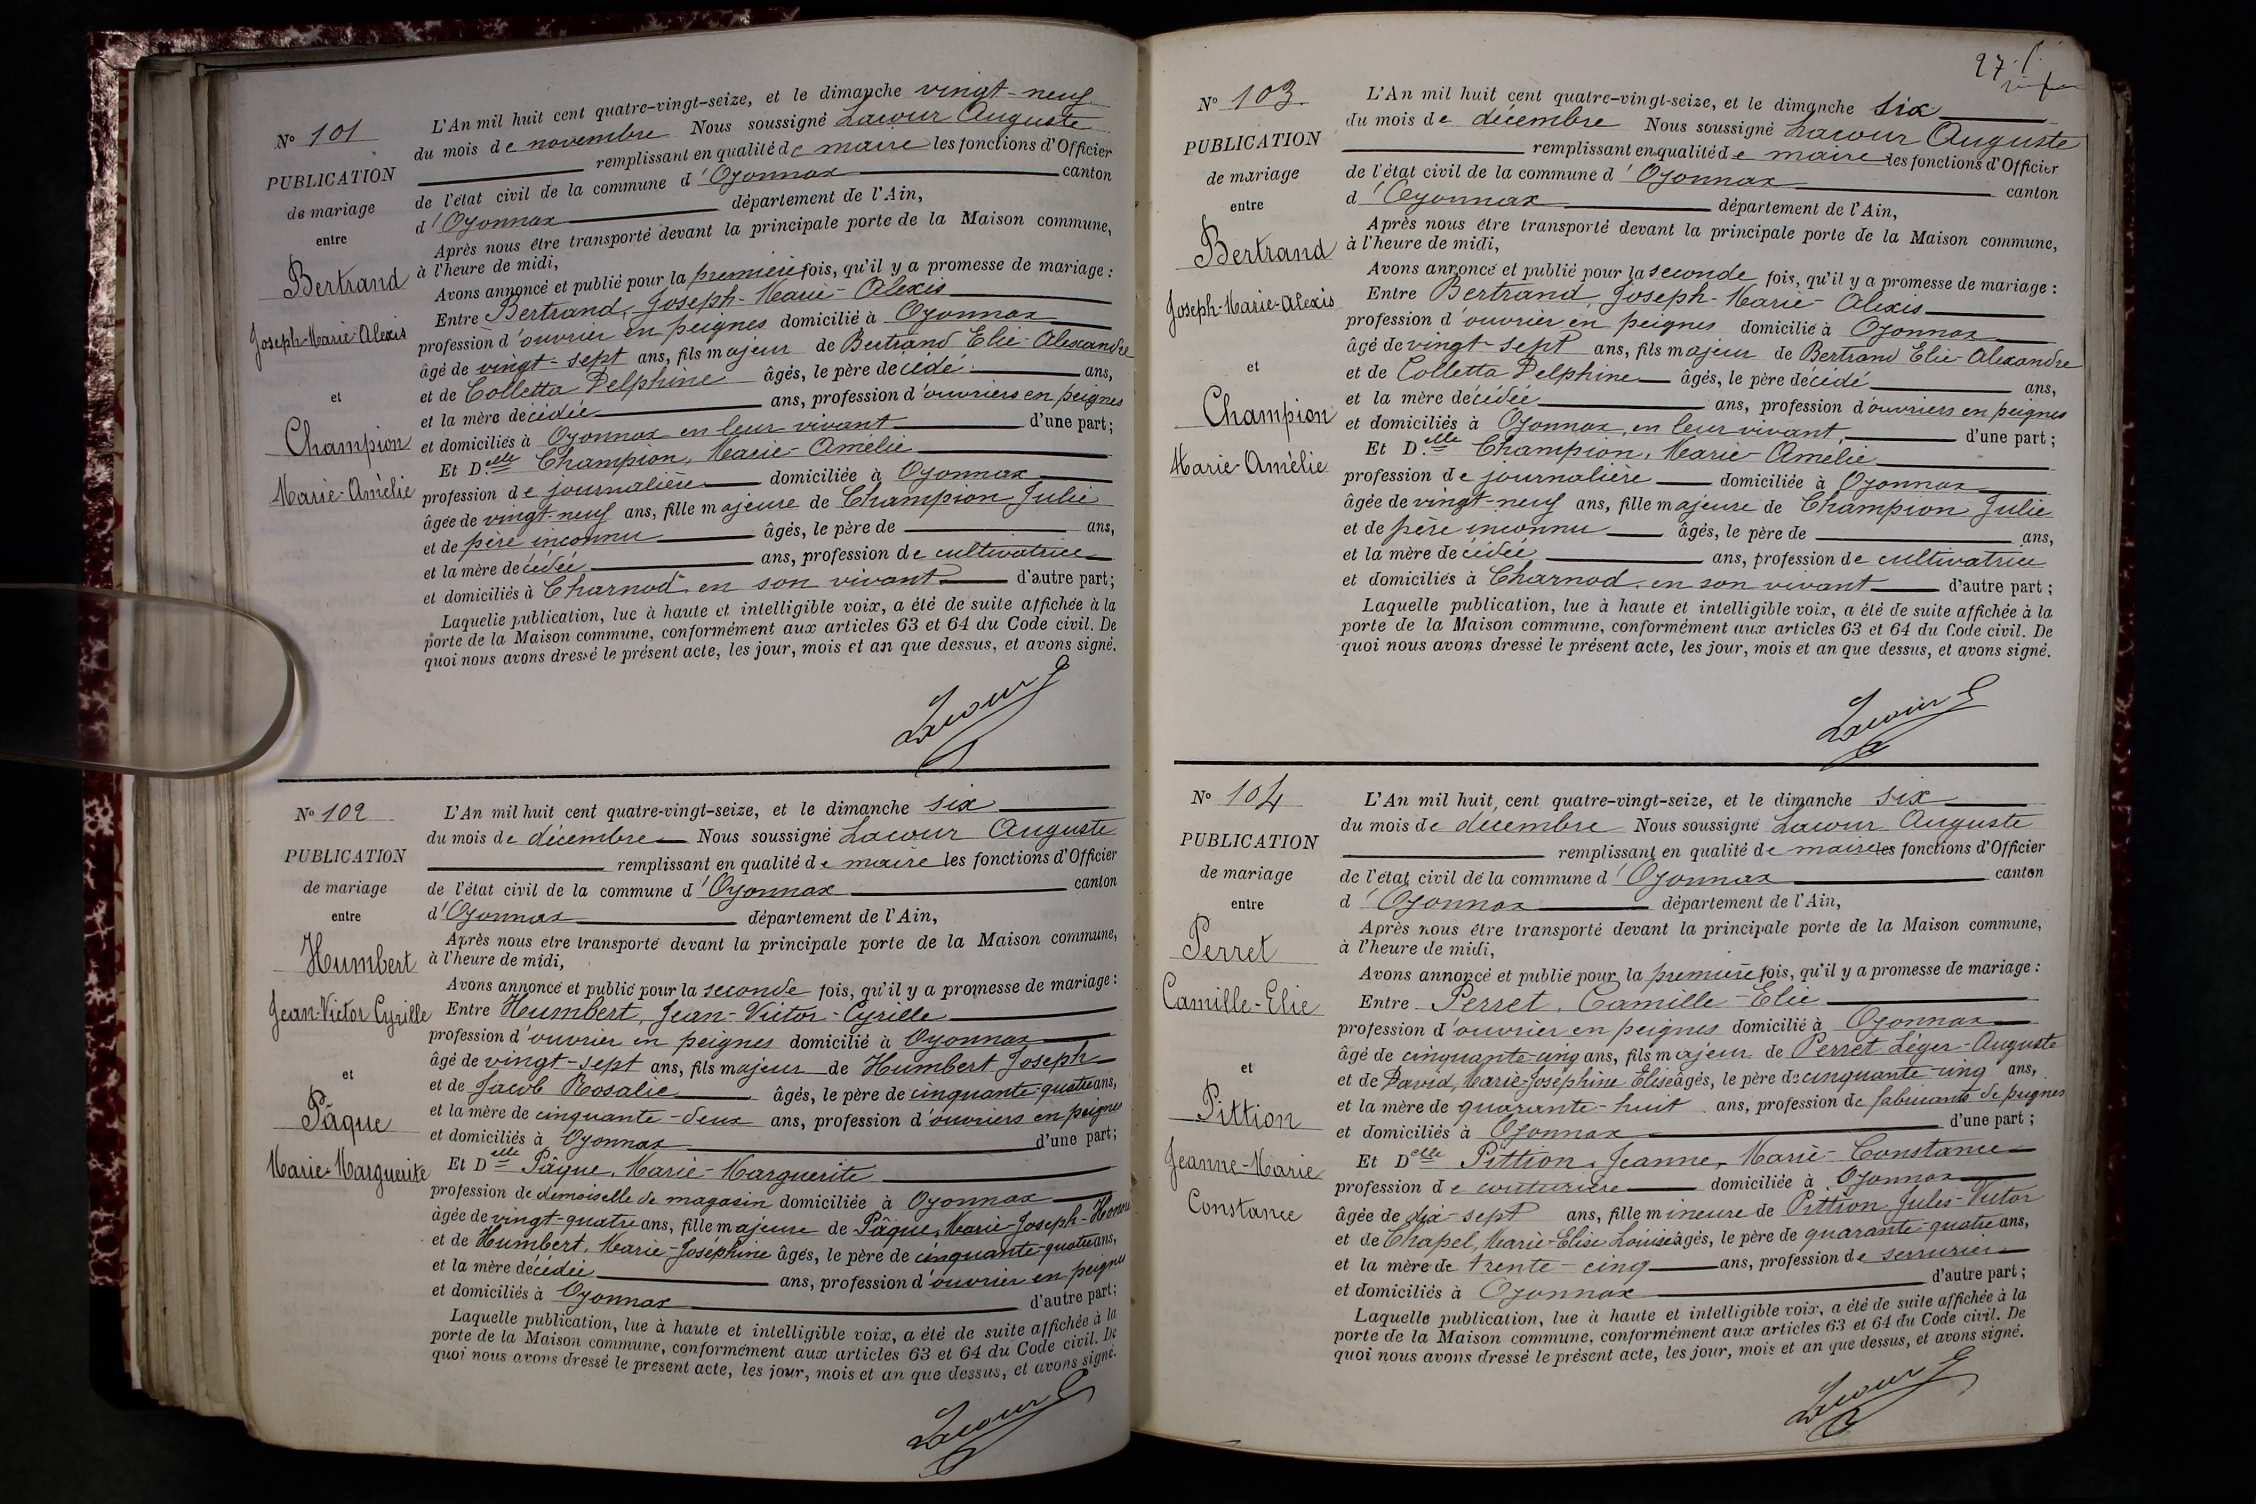 No 101
PUBLICATION
de mariage
entre
Bertrand
Joseph-Marie-Alexis
et
Champion
Marie-Amélie
L'An mil huit cent quatre-vingt-seize, et le dimanche vingt-neuf
du mois de novembre Nous soussigné Lacour Auguste
remplissant en qualité de maire les fonctions d'Officier
de l'état civil de la commune d'Oyonnax canton
d'Oyonnax département de l'Ain,
Après nous être transporté devant la principale porte de la Maison commune,
à l'heure de midi,
Avons annoncé et publié pour la première fois, qu'il y a promesse de mariage :
Entre Bertrand, Joseph-Marie-Alexis
profession d'ouvrier en peignes domicilié à Oyonnax
âgé de vingt-sept ans, fils majeur de Bertrand Elie-Alexandre
et de Colletta Delphine âgés, le père décédé ans,
et la mère décédée ans, profession d'ouvriers en peignes
et domiciliés à Oyonnax en leur vivant d'une part ;
Et Delle Champion, Marie-Amélie
profession de journalière domiciliée à Oyonnax
âgée de vingt-neuf ans, fille majeure de Champion Julie
et de père inconnu âgés, le père de ans,
et la mère décédée ans, profession de cultivatrice
et domiciliés à Charnod, en son vivant d'autre part ;
Laquelle publication, lue à haute et intelligible voix, a été de suite affichée à la
porte de la Maison commune, conformément aux articles 63 et 64 du Code civil. De
quoi nous avons dressé le présent acte, les jour, mois et an que dessus, et avons signé.
Lacour
No 102
PUBLICATION
de mariage
entre
Humbert
Jean-Victor Cyrille
et
Pâque
Marie-Marguerite
L'An mil huit cent quatre-vingt-seize, et le dimanche six
du mois de décembre Nous soussigné Lacour Auguste
remplissant en qualité de maire les fonctions d'Officier
de l'état civil de la commune d'Oyonnax canton
d'Oyonnax département de l'Ain,
Après nous être transporté devant la principale porte de la Maison commune,
à l'heure de midi,
Avons annoncé et publié pour la seconde fois, qu'il y a promesse de mariage :
Entre Humbert, Jean-Victor-Cyrille
profession d'ouvrier en peignes domicilié à Oyonnax
âgé de vingt-sept ans, fils majeur de Humbert Joseph
et de Jacob Rosalie âgés, le père de cinquante-quatre ans,
et la mère de cinquante-deux ans, profession d'ouvriers en peignes
et domiciliés à Oyonnax d'une part ;
Et Delle Pâque, Marie-Marguerite
profession de demoiselle de magasin domiciliée à Oyonnax
âgée de vingt-quatre ans, fille majeure de Pâque, Marie-Joseph-
et de Humbert, Marie-Joséphine âgés, le père de cinquante-quatre ans,
et la mère décédée ans, profession d'ouvrier en peignes
et domiciliés à Oyonnax d'autre part ;
Laquelle publication, lue à haute et intelligible voix, a été de suite affichée à la
porte de la Maison commune, conformément aux articles 63 et 64 du Code civil. De
quoi nous avons dressé le présent acte, les jour, mois et an que dessus, et avons signé.
Lacour
27
No 103
PUBLICATION
de mariage
entre
Bertrand
Joseph-Marie-Alexis
et
Champion
Marie-Amélie
L'An mil huit cent quatre-vingt-seize, et le dimanche six
du mois de décembre Nous soussigné Lacour Auguste
remplissant en qualité de maire les fonctions d'Officier
de l'état civil de la commune d'Oyonnax canton
d'Oyonnax département de l'Ain,
Après nous être transporté devant la principale porte de la Maison commune,
à l'heure de midi,
Avons annoncé et publié pour la seconde fois, qu'il y a promesse de mariage :
Entre Bertrand, Joseph-Marie-Alexis
profession d'ouvrier en peignes domicilié à Oyonnax
âgé de vingt-sept ans, fils majeur de Bertrand Elie-Alexandre
et de Colletta Delphine âgés, le père décédé ans,
et la mère décédée ans, profession d'ouvriers en peignes
et domiciliés à Oyonnax, en leur vivant, d'une part ;
Et Delle Champion, Marie-Amélie
profession de journalière domiciliée à Oyonnax
âgée de vingt-neuf ans, fille majeure de Champion Julie
et de père inconnu âgés, le père de ans,
et la mère décédée ans, profession de cultivatrice
et domiciliés à Charnod, en son vivant d'autre part ;
Laquelle publication, lue à haute et intelligible voix, a été de suite affichée à la
porte de la Maison commune, conformément aux articles 63 et 64 du Code civil. De
quoi nous avons dressé le présent acte, les jour, mois et an que dessus, et avons signé.
Lacour
No 104
PUBLICATION
de mariage
entre
Perret
Camille-Elie
et
Pittion
Jeanne-Marie
Constance
L'An mil huit cent quatre-vingt-seize, et le dimanche six
du mois de décembre Nous soussigné Lacour Auguste
remplissant en qualité de maire les fonctions d'Officier
de l'état civil de la commune d'Oyonnax canton
d'Oyonnax département de l'Ain,
Après nous être transporté devant la principale porte de la Maison commune,
à l'heure de midi,
Avons annoncé et publié pour la première fois, qu'il y a promesse de mariage :
Entre Perret, Camille-Elie
profession d'ouvrier en peignes domicilié à Oyonnax
âgé de cinquante-cinq ans, fils majeur de Perret Léger-Auguste
et de David, Marie-Joséphine Elise âgés, le père de cinquante-cinq ans,
et la mère de quarante-huit ans, profession de fabricants de peignes
et domiciliés à Oyonnax d'une part ;
Et Delle Pittion, Jeanne, Marie-Constance
profession de couturière domiciliée à Oyonnax
âgée de dix-sept ans, fille mineure de Pittion Jules-Victor
et de Chapel, Marie-Elise Louise âgés, le père de quarante-quatre ans,
et la mère de trente-cinq ans, profession de serrurier
et domiciliés à Oyonnax d'autre part ;
Laquelle publication, lue à haute et intelligible voix, a été de suite affichée à la
porte de la Maison commune, conformément aux articles 63 et 64 du Code civil. De
quoi nous avons dressé le présent acte, les jour, mois et an que dessus, et avons signé.
Lacour